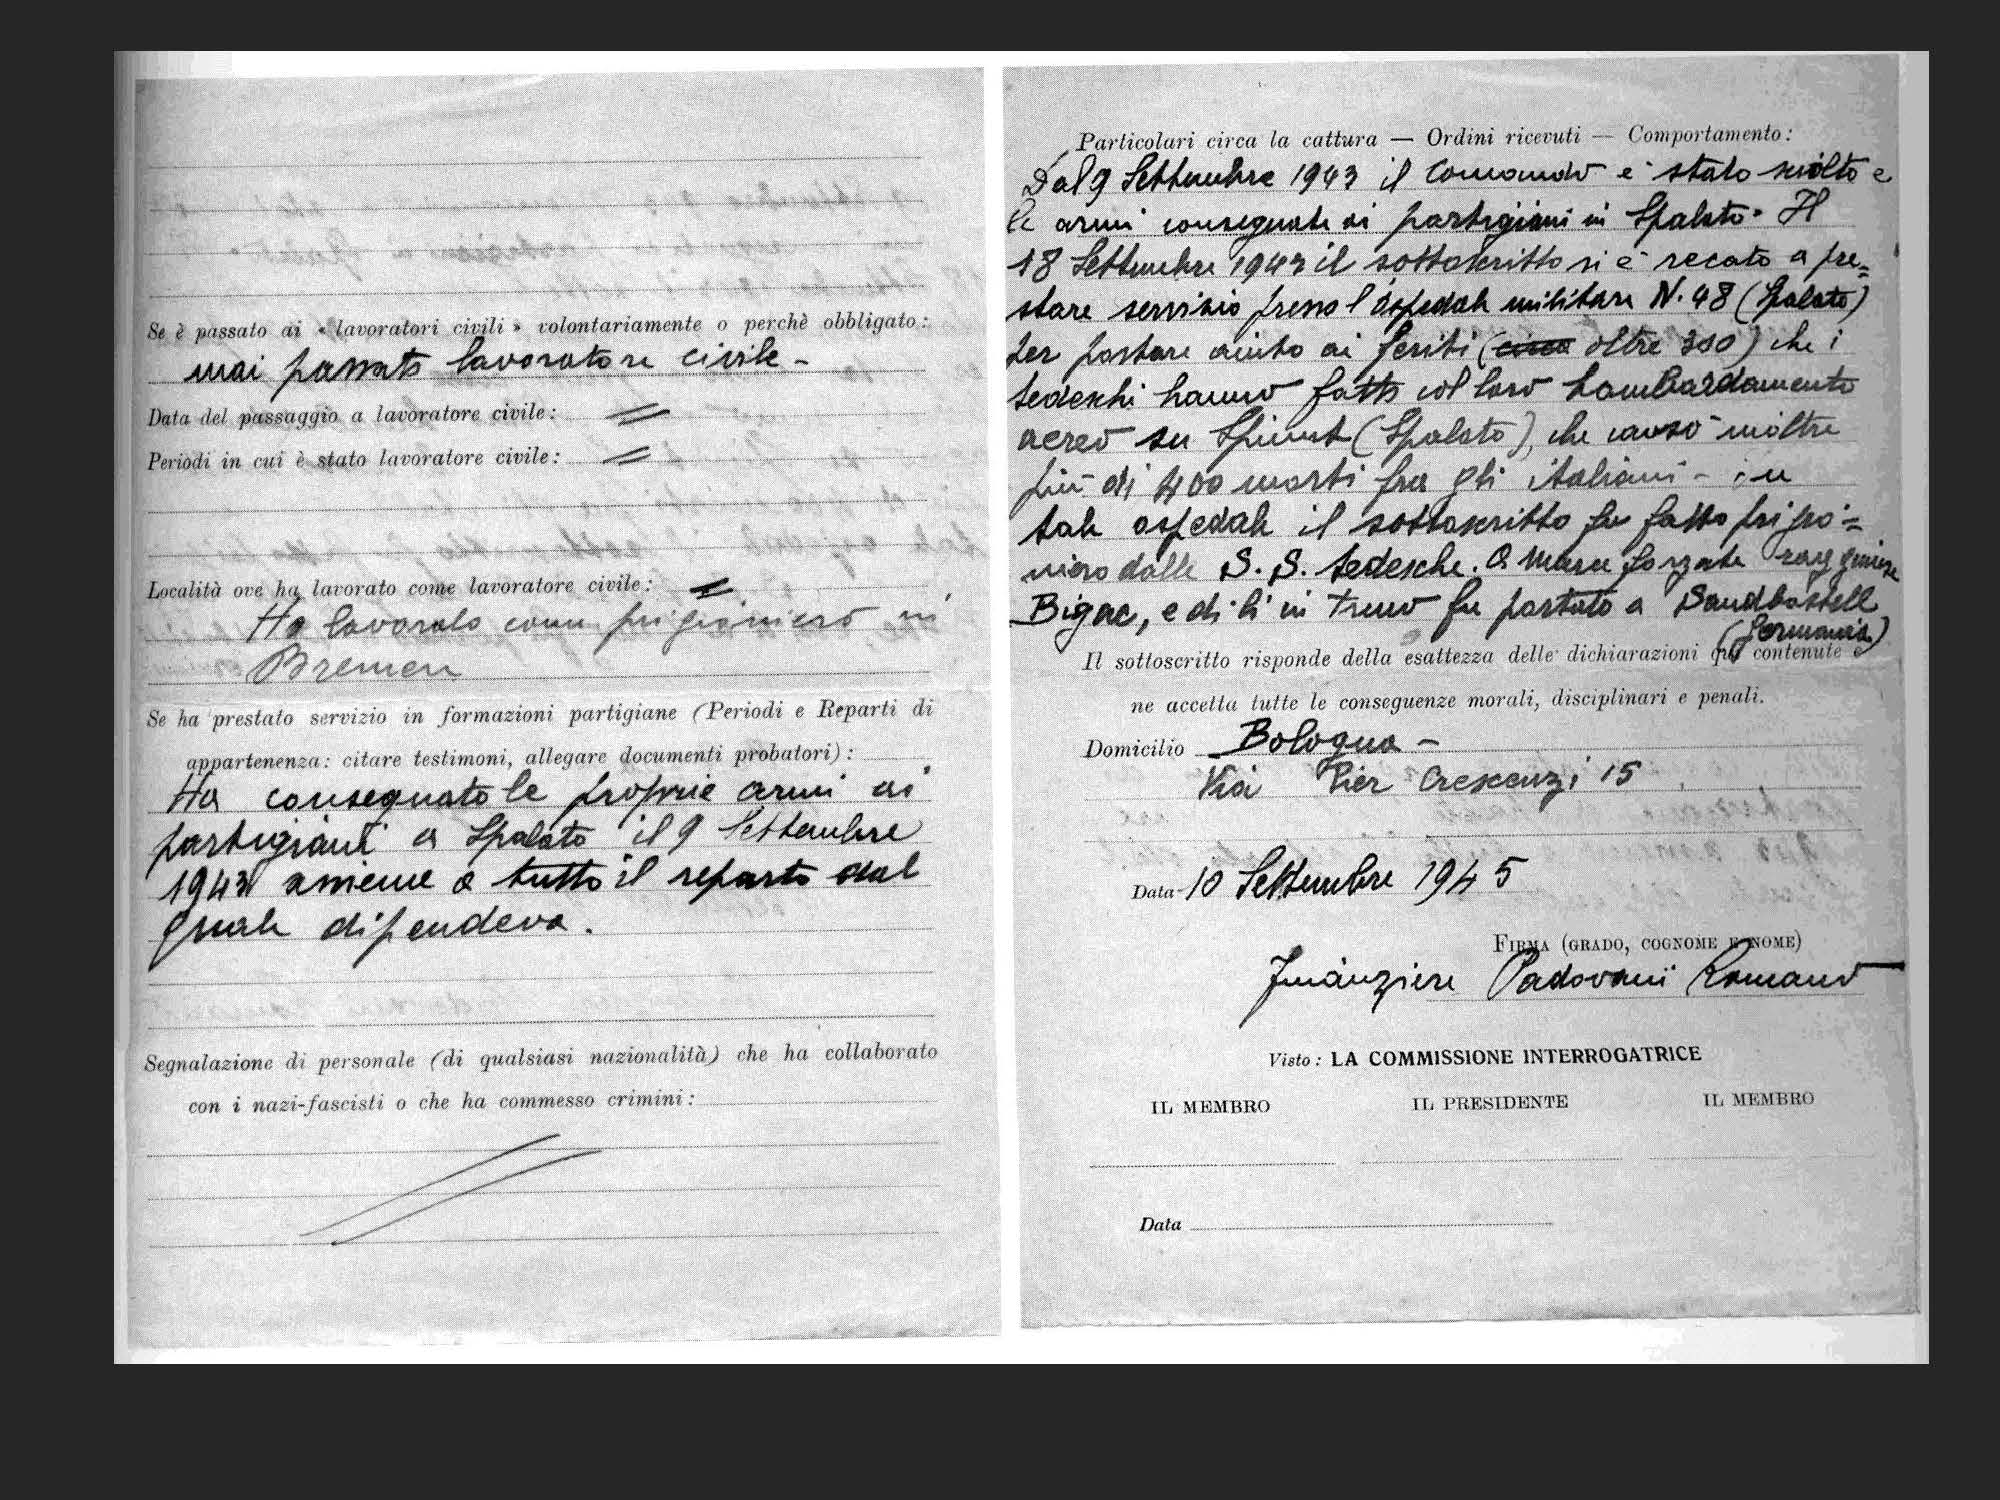 Se è passato ai « lavoratori civili » volontariamente o perchè obbligato:
mai passato lavoratore civile -
Data del passaggio a lavoratore civile: =
Periodi in cui è stato lavoratore civile: =
Località ove ha lavorato come lavoratore civile: =
Ha lavorato come prigioniero in
Bremen
Se ha prestato servizio in formazioni partigiane (Periodi e Reparti di
appartenenza: citare testimoni, allegare documenti probatori):
Ha consegnato le proprie armi ai
partigiani a Spalato il 9 Settembre
1943 assieme a tutto il reparto dal
quale dipendeva.
Segnalazione di personale (di qualsiasi nazionalità) che ha collaborato
con i nazi-fascisti o che ha commesso crimini:
Particolari circa la cattura — Ordini ricevuti — Comportamento:
Dal 9 Settembre 1943 il Comando è stato sciolto e
le armi consegnate ai partigiani in Spalato. Il
18 Settembre 1943 il sottoscritto si è recato a pre=
stare servizio presso l'ospedale militare N. 48 (Spalato)
per portare aiuto ai feriti (circa oltre 300) che i
tedeschi hanno fatto col loro bombardamento
aereo su Spinut (Spalato), che causò inoltre
più di 400 morti fra gli italiani - in
tale ospedale il sottoscritto fu fatto prigio=
niero dalle S. S. tedesche. A marce forzate raggiunse
Bigac, e di lì in treno fu portato a Sandbostell
(Germania)
Il sottoscritto risponde della esattezza delle dichiarazioni qui contenute e
ne accetta tutte le conseguenze morali, disciplinari e penali.
Domicilio Bologna -
Via Pier Crescenzi 15
Data 10 Settembre 1945
FIRMA (GRADO, COGNOME E NOME)
Finanziere Padovani Romano
Visto: LA COMMISSIONE INTERROGATRICE
IL MEMBRO IL PRESIDENTE IL MEMBRO
Data